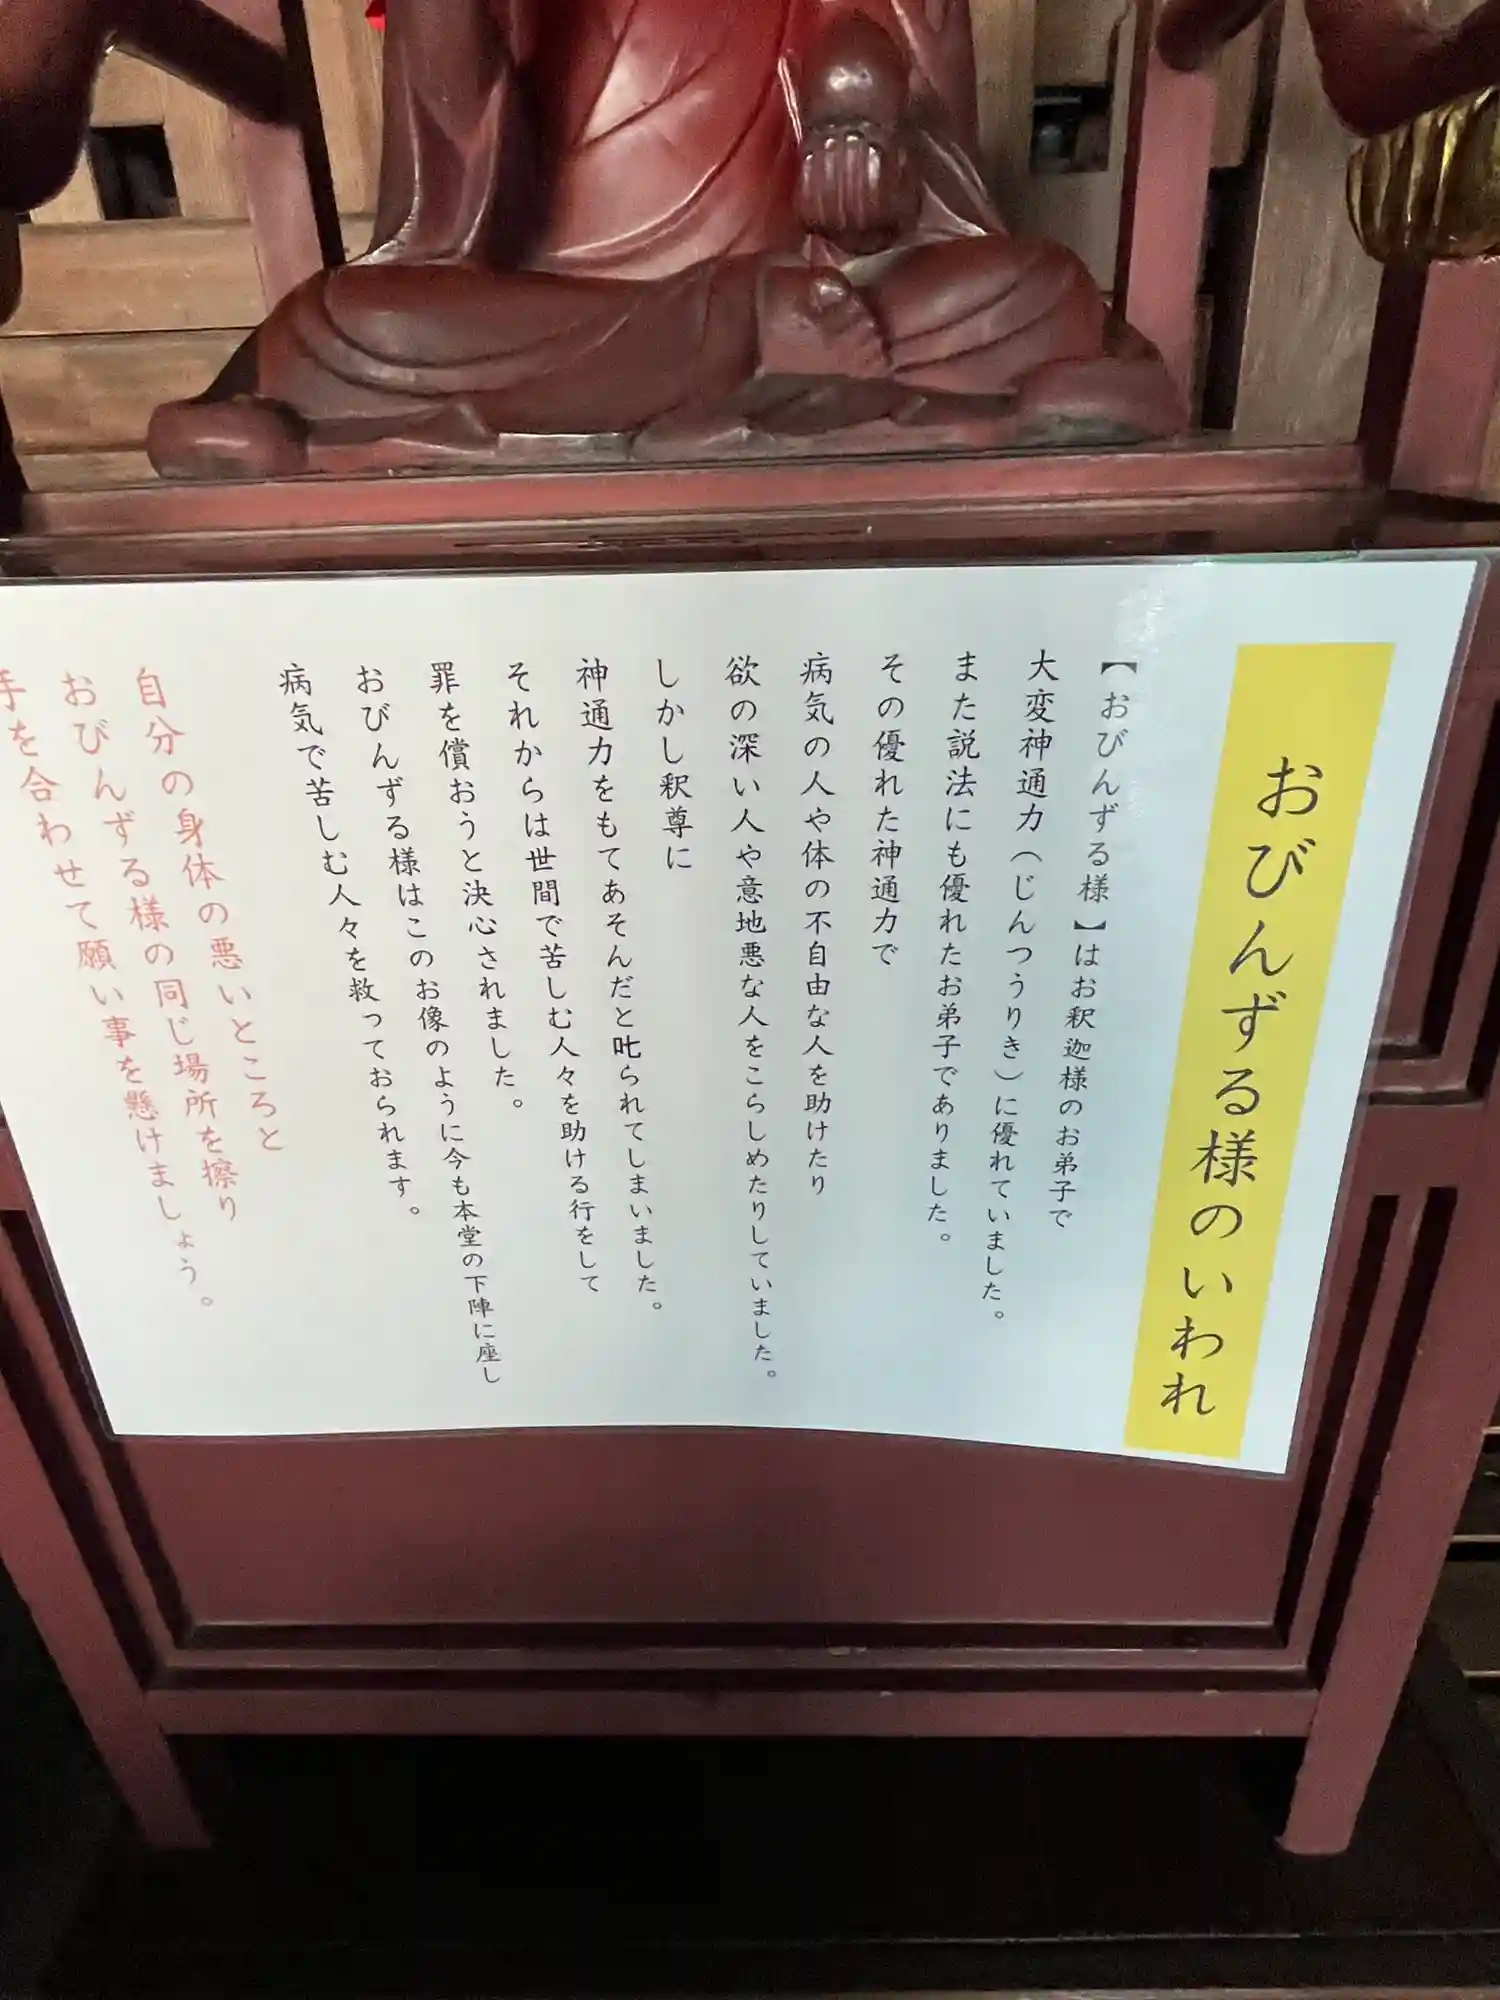 おびんずる様のいわれ
【おびんずる様】はお釈迦様のお弟子で
大変神通力(じんつうりき)に優れていました。
また説法にも優れたお弟子でありました。
その優れた神通力で
病気の人や体の不自由な人を助けたり
欲の深い人や意地悪な人をこらしめたりしていました。
しかし釈尊に
神通力をもてあそんだと叱られてしまいました。
それからは世間で苦しむ人々を助ける行をして
罪を償おうと決心されました。
おびんずる様はこのお像のように今も本堂の下陣に座し
病気で苦しむ人々を救っておられます。
自分の身体の悪いところと
おびんずる様の同じ場所を擦り
手を合わせて願い事を懸けましょう。